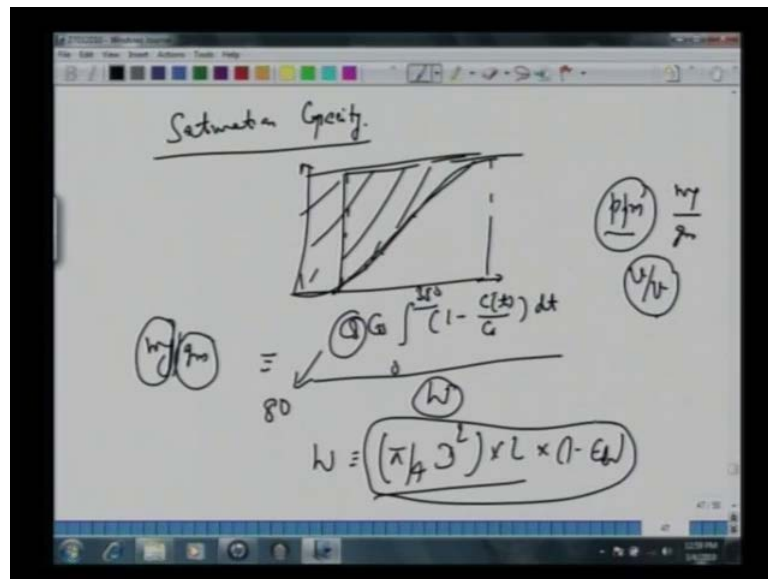 File Edit View Insert Actions Tools Help
Saturation Capacity.
ppm mg/gm
v/v
mg/gm ≡ Q C₀ ∫₀³⁸⁰ (1 - C(t)/C₀) dt
W
80
W ≡ (π/4 D²) × L × (1 - εb)
12:59 PM